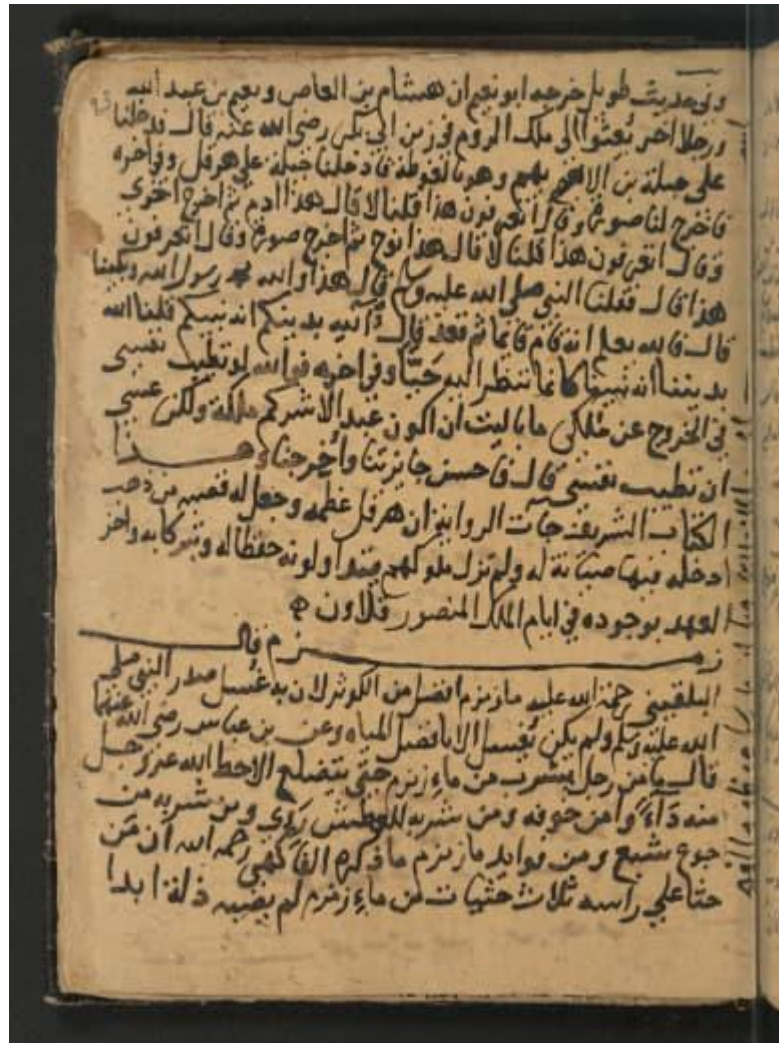 وفى حديث طويل خرجه ابو نعيم ان هشام بن العاص ونعيم بن عبد الله
ورجلا اخر بُعثوا الى ملك الروم فى زمن ابى بكر رضى الله عنه قال فدخلنا
على جبلة بن الايهم وهو بالغوطة فادخلنا جبلة على هرقل وفى اخره
فاخرج لنا صورة وقال اتعرفون هذا قلنا لا قال هذا ادم ثم اخرج اخرى
وقال اتعرفون هذا قلنا لا قال هذا نوح ثم اخرج صورة وقال اتعرفون
هذا قال فقلنا النبى صلى الله عليه وسلم قال هذا والله محمد رسول الله
قال فالله يعلم انه قام قايما ثم قعد قال آلله بدينكم انه نبيكم قلنا الله
بديننا انه نبينا كانما ننظر اليه حَيّا وفى اخره فوالله لو تطيب نفسى
فى الخروج عن مُلكى ما باليت ان اكون عبد الاشركم ملكة ولكن عسى
ان تطيب نفسى قال فاحسن جايزتنا وأُخرجنا وهـذا
الكتاب الشريف جات الرواية ان هرقل عظمه وجعل له قصبة من ذهب
ادخله فيها صيانة له ولم تزل ملوكهم يتداولونه حفظا له وتبركا به واخر
العهد بوجوده فى ايام الملك المنصور قلاون
زمـزم قالـ
البلقينى رحمة الله عليه ماء زمزم افضل من الكوثر لان به غُسل صدر النبى صلى
الله عليه وسلم ولم يكن يُغسل الا بافضل المياه وعن بن عباس رضى الله عنهما
قال ما من رجل يشرب من ماءِ زمزم حتى يتضلع الاحط الله عز وجل
منه دَآءً من جوفه ومن شربه للعطش رَوِى ومن شربه من
جوع شبع ومن فوايد ماء زمزم ما ذكره الفاكهى رحمه الله ان من
حثا على راسه ثلاث حثيات من ماءِ زمزم لم يصبه ذلة ابدا